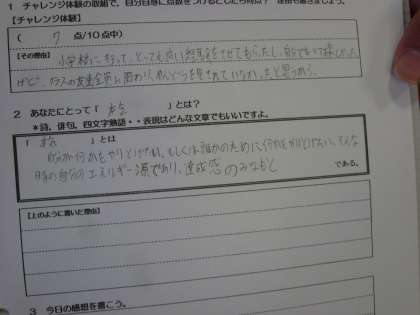 1 チャレンジ体験の取組で、自分自身に点数をつけるとしたら何点? 理由も書きましょう。
【チャレンジ体験】
( 7 点/10点中)
【その理由】 小学校に行って、とっても良い経験をさせてもらったし、
けど、クラスの友達全員と関わり、めんどうを見きれていなかったと思うから。
2 あなたにとって「 」とは?
*詩、俳句、四文字熟語・・表現はどんな文章でもいいですよ。
「 」とは
自分が何かをやりとげたい、もしくは誰かのために何かをやりとげたい、そんな
時の自分のエネルギー源であり、達成感のみなもと である。
【上のように書いた理由】
3 今日の感想を書こう。